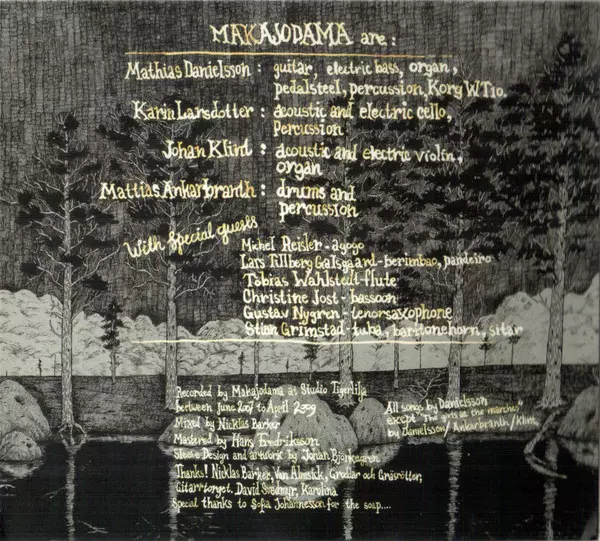 MAKAJODAMA are:
Mathias Danielsson: guitar, electric bass, organ,
pedalsteel, percussion, Korg WT10.
Karin Larsdotter: acoustic and electric cello,
Percussion
Johan Klint: acoustic and electric violin,
organ
Mattias Ankarbranth: drums and
percussion
With special guests
Michel Reisler - agogo
Lars Tillberg Galsgaard - berimbao, pandeiro
Tobias Wahlstedt - flute
Christine Jost - bassoon
Gustav Nygren - tenorsaxophone
Stian Grimstad - tuba, baritonehorn, sitar
Recorded by Makajodama at Studio Tigerlilja
between June 2007 to April 2009
Mixed by Nicklas Barker
Mastered by Hans Fredriksson
Sleeve Design and artwork by Johan Björkegren
Thanks! Nicklas Barker, Van Almsick, Grodlar och Gräsrötter,
Gitarrtorget, David Svedmyr, Karolina
Special thanks to Sofia Johannesson for the soap....
All songs by Danielsson
except "The girls at the marches"
by Danielsson/Ankarbranth/Klint